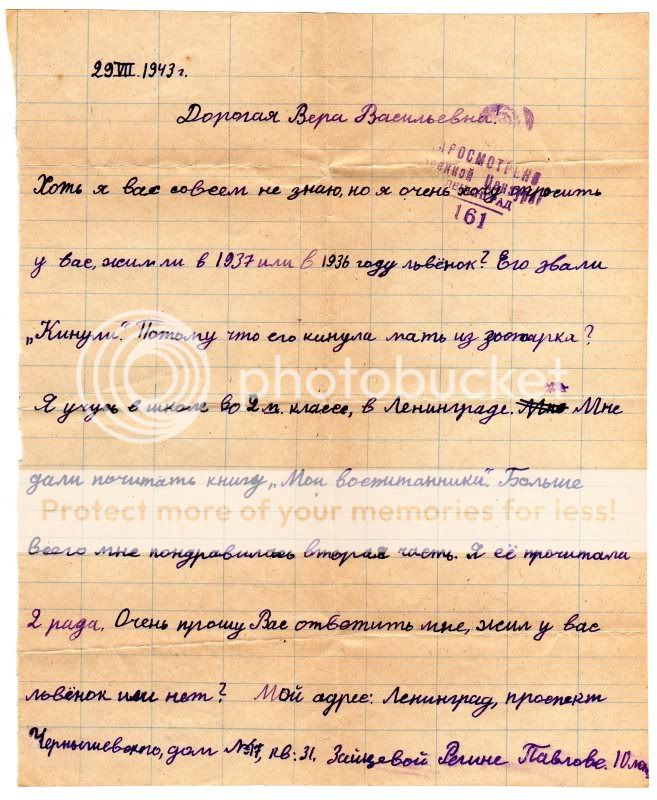 29 VII. 1943 г.
Дорогая Вера Васильевна!
ПРОСМОТРЕНО
161
Хоть я вас совсем не знаю, но я очень хочу спросить
у вас, жил ли в 1937 или в 1936 году львёнок? Его звали
„Кинули". Потому что его кинула мать из зоопарка?
photobucket
Я учусь в школе во 2 м. классе, в Ленинграде. Мне
дали почитать книгу „Мои воспитанники". Больше
Protect more of your memories for less!
всего мне пондравилась вторая часть. Я её прочитала
2 раза. Очень прошу Вас ответить мне, жил у вас
львёнок или нет? Мой адрес: Ленинград, проспект
Чернышевского, дом кв. 31. Зайцевой Регине Павловe. 10 лет